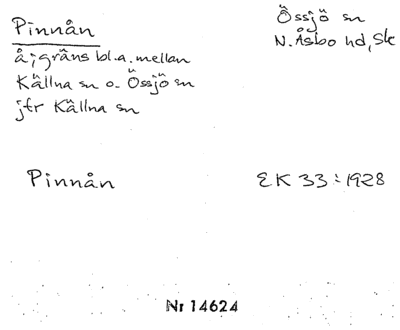 Pinnån
Össjö sn
N. Åsbo hd, Sk
å; gräns bl.a. mellan
Källna sn o. Össjö sn
jfr Källna sn
Pinnån
EK 33: 1928
Nr 14624